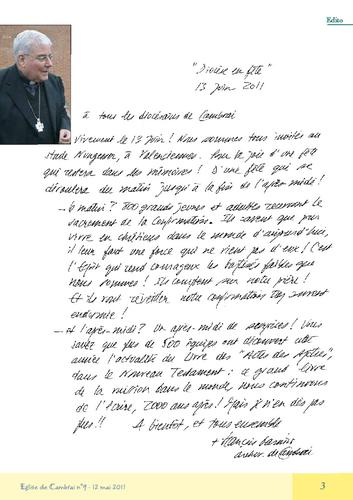 Edito
"Diocèse en fête"
13 juin 2011
à tous les diocésains de Cambrai
Vivement le 13 juin ! Nous sommes tous invités au
stade Nungesser, à Valenciennes. Pour la joie d'une fête
qui restera dans les mémoires ! D'une fête qui se
déroulera du matin jusqu'à la fin de l'après-midi !
le matin ? 700 grands jeunes et adultes recevront le
sacrement de la Confirmation. Ils savent que pour
vivre en chrétiens dans le monde d'aujourd'hui,
il leur faut une force qui ne vient pas d'eux ! C'est
l'Esprit qui rend courageux les baptisés faibles que
nous sommes ! Ils comptent sur notre prière !
Et ils vont réveiller notre confirmation trop souvent
endormie !
et l'après-midi ? Un après-midi de surprises ! Vous
savez que plus de 800 équipes ont découvert cette
année l'actualité du livre des "Actes des Apôtres",
dans le Nouveau Testament : ce grand livre
de la mission dans le monde, nous continuons
de l'écrire, 2000 ans après ! Mais je n'en dis pas
plus !! A bientôt, et tous ensemble
+ François Garnier
archev. de Cambrai
Eglise de Cambrai n°9 - 12 mai 2011
3